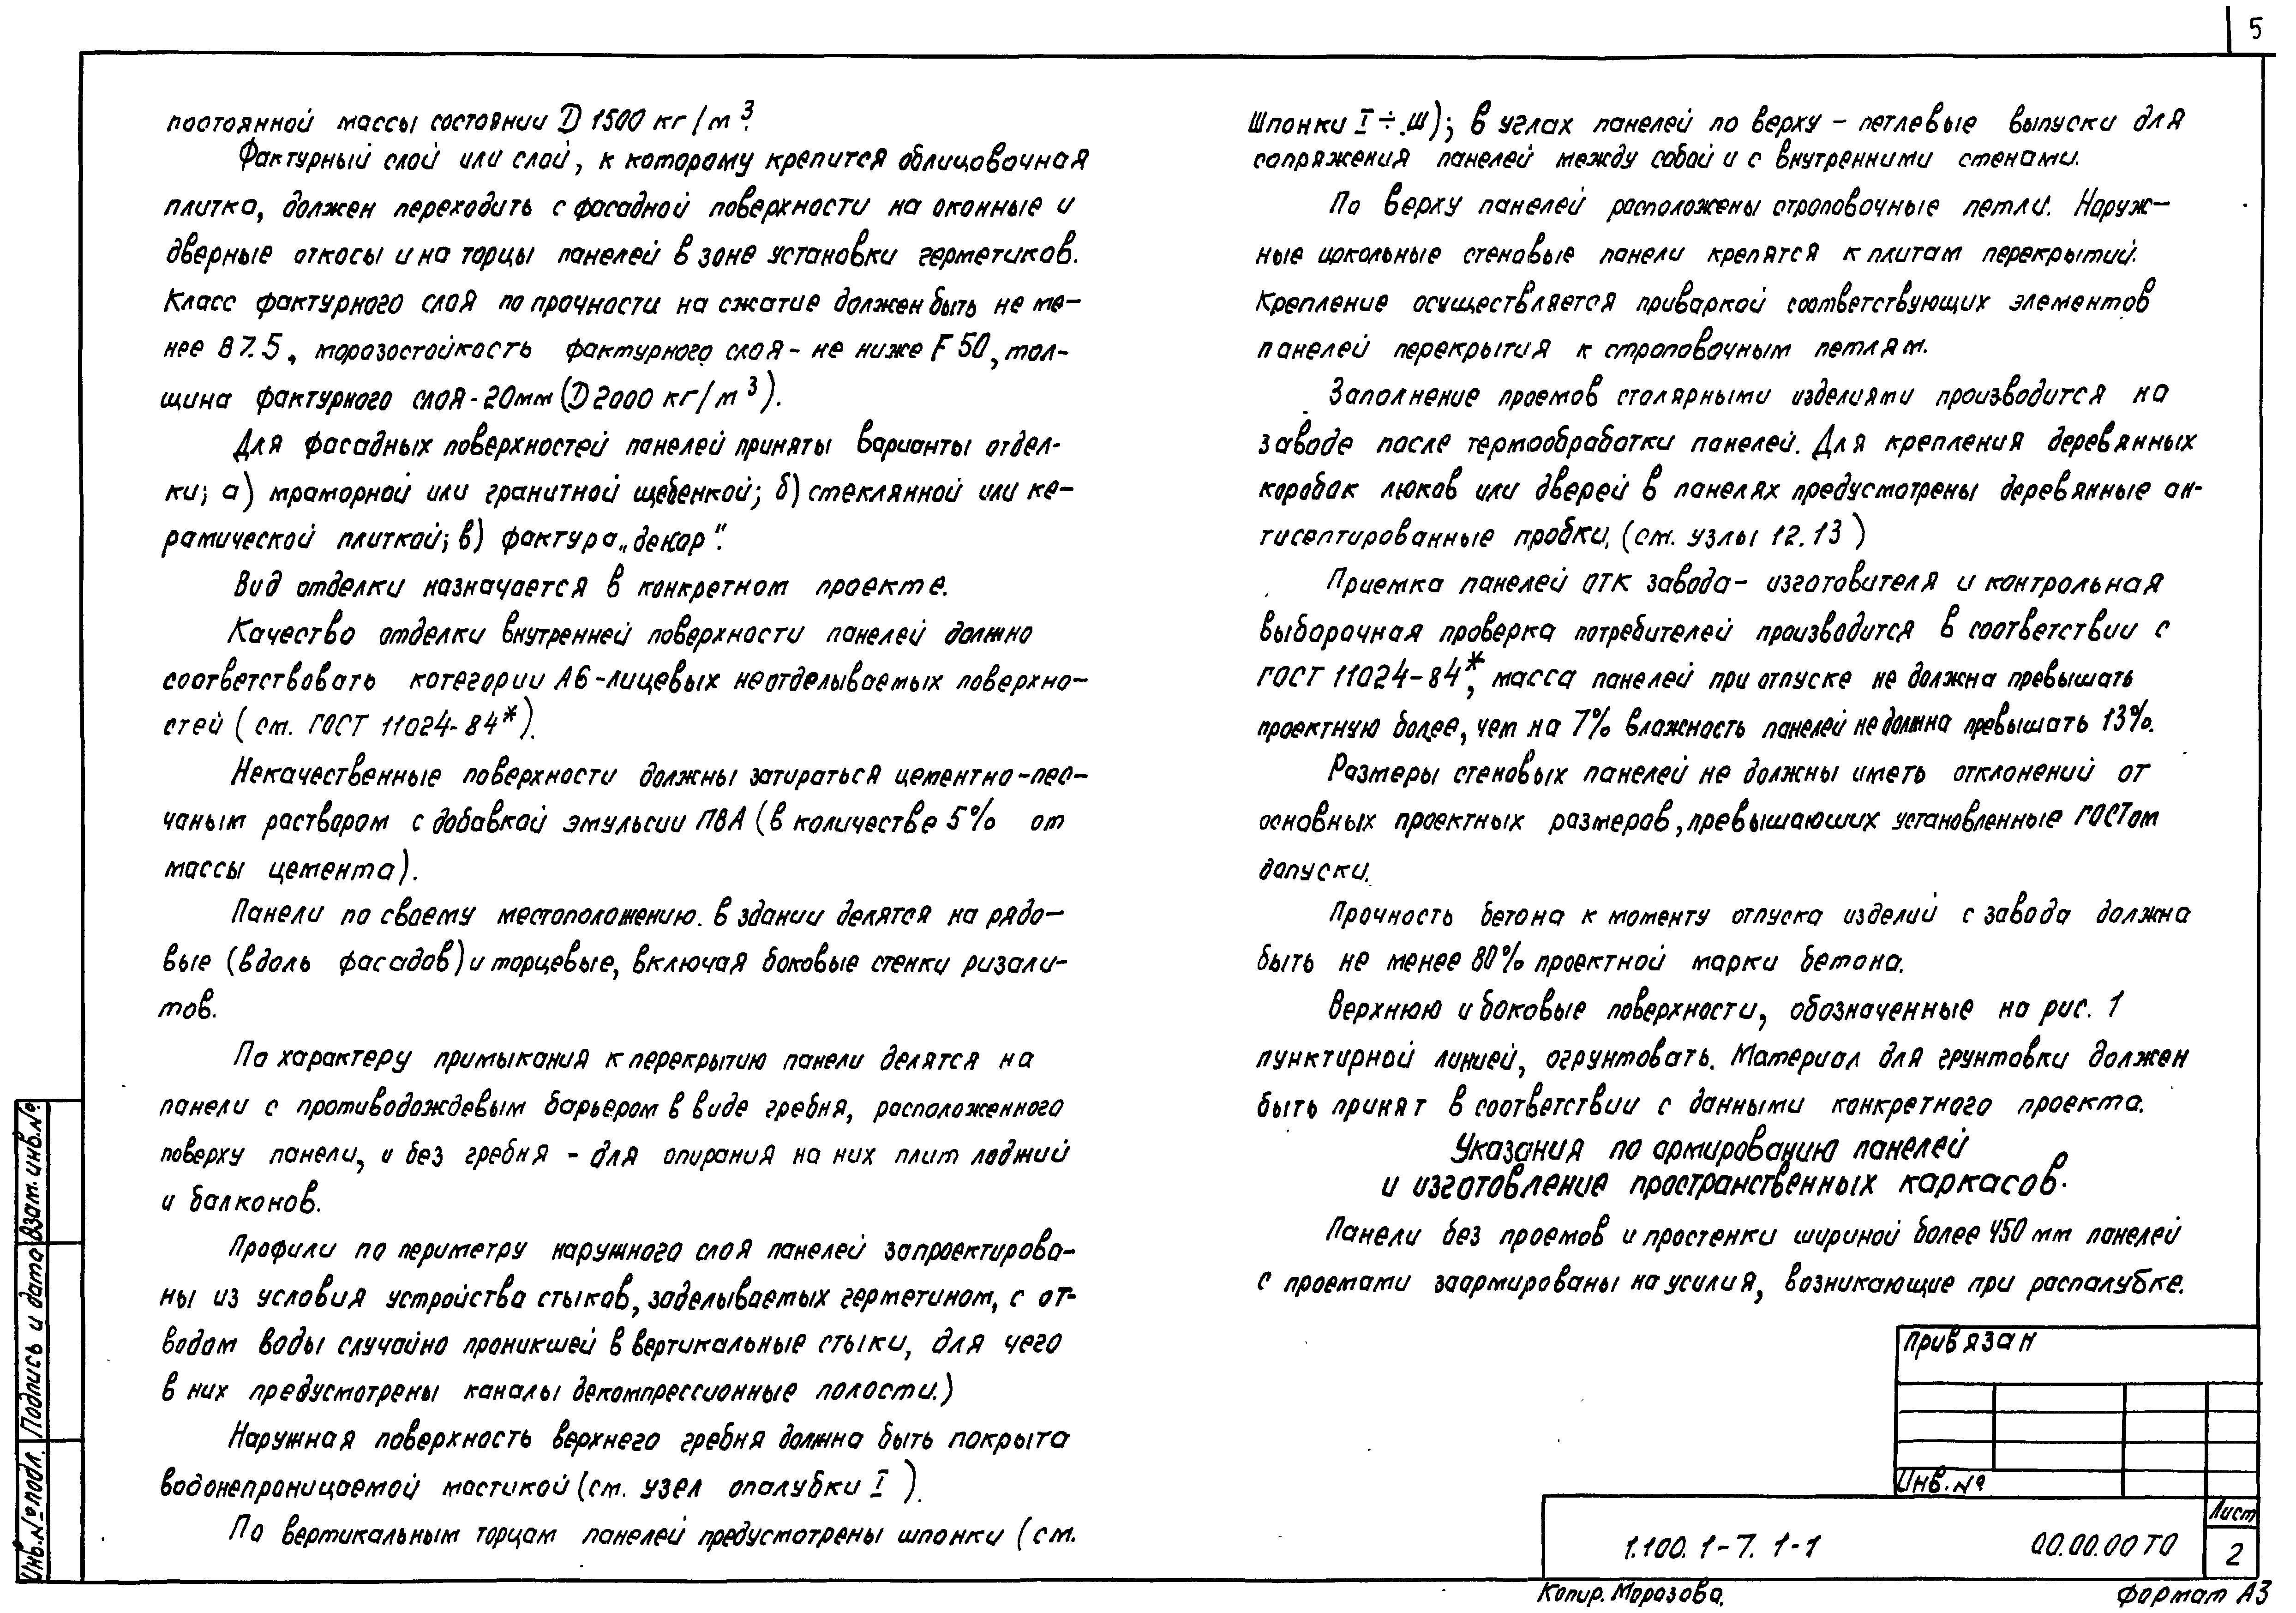 5
постоянной массы состоянии D 1500 кг/м³.
Фактурный слой или слой, к которому крепится облицовочная
плитка, должен переходить с фасадной поверхности на оконные и
дверные откосы и на торцы панелей в зоне установки герметиков.
Класс фактурного слоя по прочности на сжатие должен быть не ме-
нее В7.5, морозостойкость фактурного слоя - не ниже F 50, тол-
щина фактурного слоя - 20мм (D 2000 кг/м³).
Для фасадных поверхностей панелей приняты варианты отдел-
ки; а) мраморной или гранитной щебенкой; б) стеклянной или ке-
рамической плиткой; в) фактура „декор".
Вид отделки назначается в конкретном проекте.
Качество отделки внутренней поверхности панелей должно
соответствовать категории А6-лицевых неотделываемых поверхно-
стей (см. ГОСТ 11024-84*).
Некачественные поверхности должны затираться цементно-пес-
чаным раствором с добавкой эмульсии ПВА (в количестве 5% от
массы цемента).
Панели по своему местоположению в здании делятся на рядо-
вые (вдоль фасадов) и торцевые, включая боковые стенки ризали-
тов.
По характеру примыкания к перекрытию панели делятся на
панели с противодождевым барьером в виде гребня, расположенного
поверху панели, и без гребня - для опирания на них плит лоджий
и балконов.
Профили по периметру наружного слоя панелей запроектирова-
ны из условия устройства стыков, заделываемых герметиком, с от-
водом воды случайно проникшей в вертикальные стыки, для чего
в них предусмотрены каналы декомпрессионные полости.)
Наружная поверхность верхнего гребня должна быть покрыта
водонепроницаемой мастикой (см. узел опалубки I ).
По вертикальным торцам панелей предусмотрены шпонки (см.
шпонки I ÷ Ш); в углах панелей по верху - петлевые выпуски для
сопряжения панелей между собой и с внутренними стенами.
По верху панелей расположены строповочные петли. Наруж-
ные цокольные стеновые панели крепятся к плитам перекрытий.
Крепление осуществляется приваркой соответствующих элементов
панелей перекрытия к строповочным петлям.
Заполнение проемов столярными изделиями производится на
заводе после термообработки панелей. Для крепления деревянных
коробок люков или дверей в панелях предусмотрены деревянные ан-
тисептированные пробки. (см. узлы 12.13)
Приемка панелей ОТК завода - изготовителя и контрольная
выборочная проверка потребителей производится в соответствии с
ГОСТ 11024-84*, масса панелей при отпуске не должна превышать
проектную более, чем на 7% влажность панелей не должна превышать 13%.
Размеры стеновых панелей не должны иметь отклонений от
основных проектных размеров, превышающих установленные ГОСТом
допуски.
Прочность бетона к моменту отпуска изделий с завода должна
быть не менее 80% проектной марки бетона.
Верхнюю и боковые поверхности, обозначенные на рис. 1
пунктирной линией, огрунтовать. Материал для грунтовки должен
быть принят в соответствии с данными конкретного проекта.
Указания по армированию панелей
и изготовление пространственных каркасов.
Панели без проемов и простенки шириной более 450 мм панелей
с проемами заармированы на усилия, возникающие при распалубке.
Привязан
Инв. №
1.100. 1-7. 1-1
00.00.00 ТО
Лист
2
Копир. Морозова.
Формат А3
Инв.№ подл.
Подпись и дата
Взам. инв.№